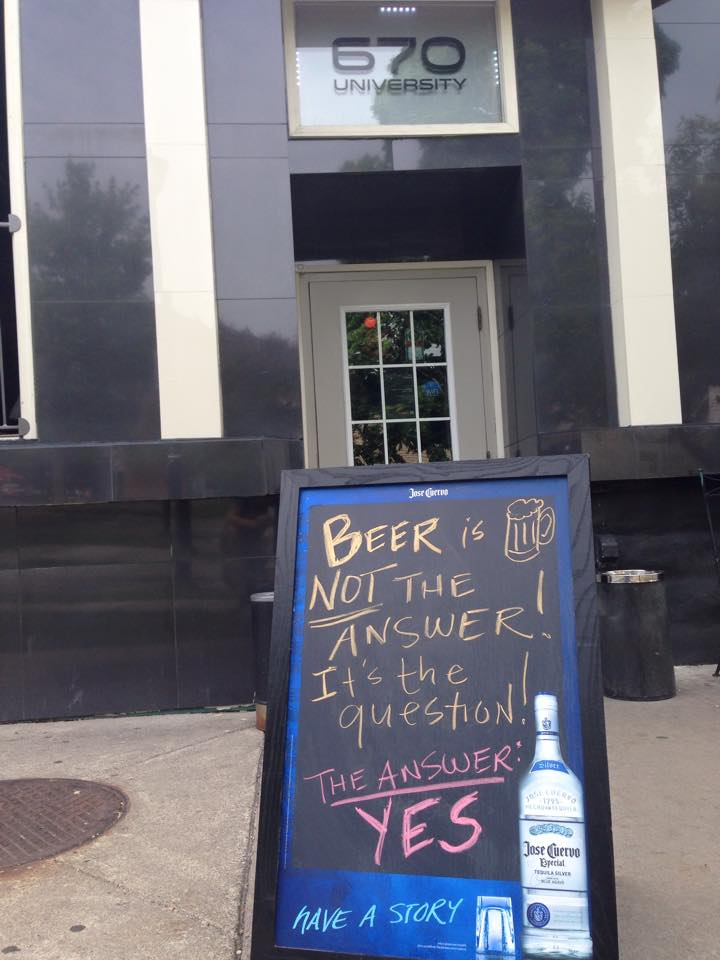 670
UNIVERSITY
Jose Cuervo
BEER is
NOT THE
ANSWER!
It's the
question!
THE ANSWER:
YES
HAVE A STORY
Silver
JOSE CUERVO
1795
Jose Cuervo
Especial
TEQUILA SILVER
BLUE AGAVE